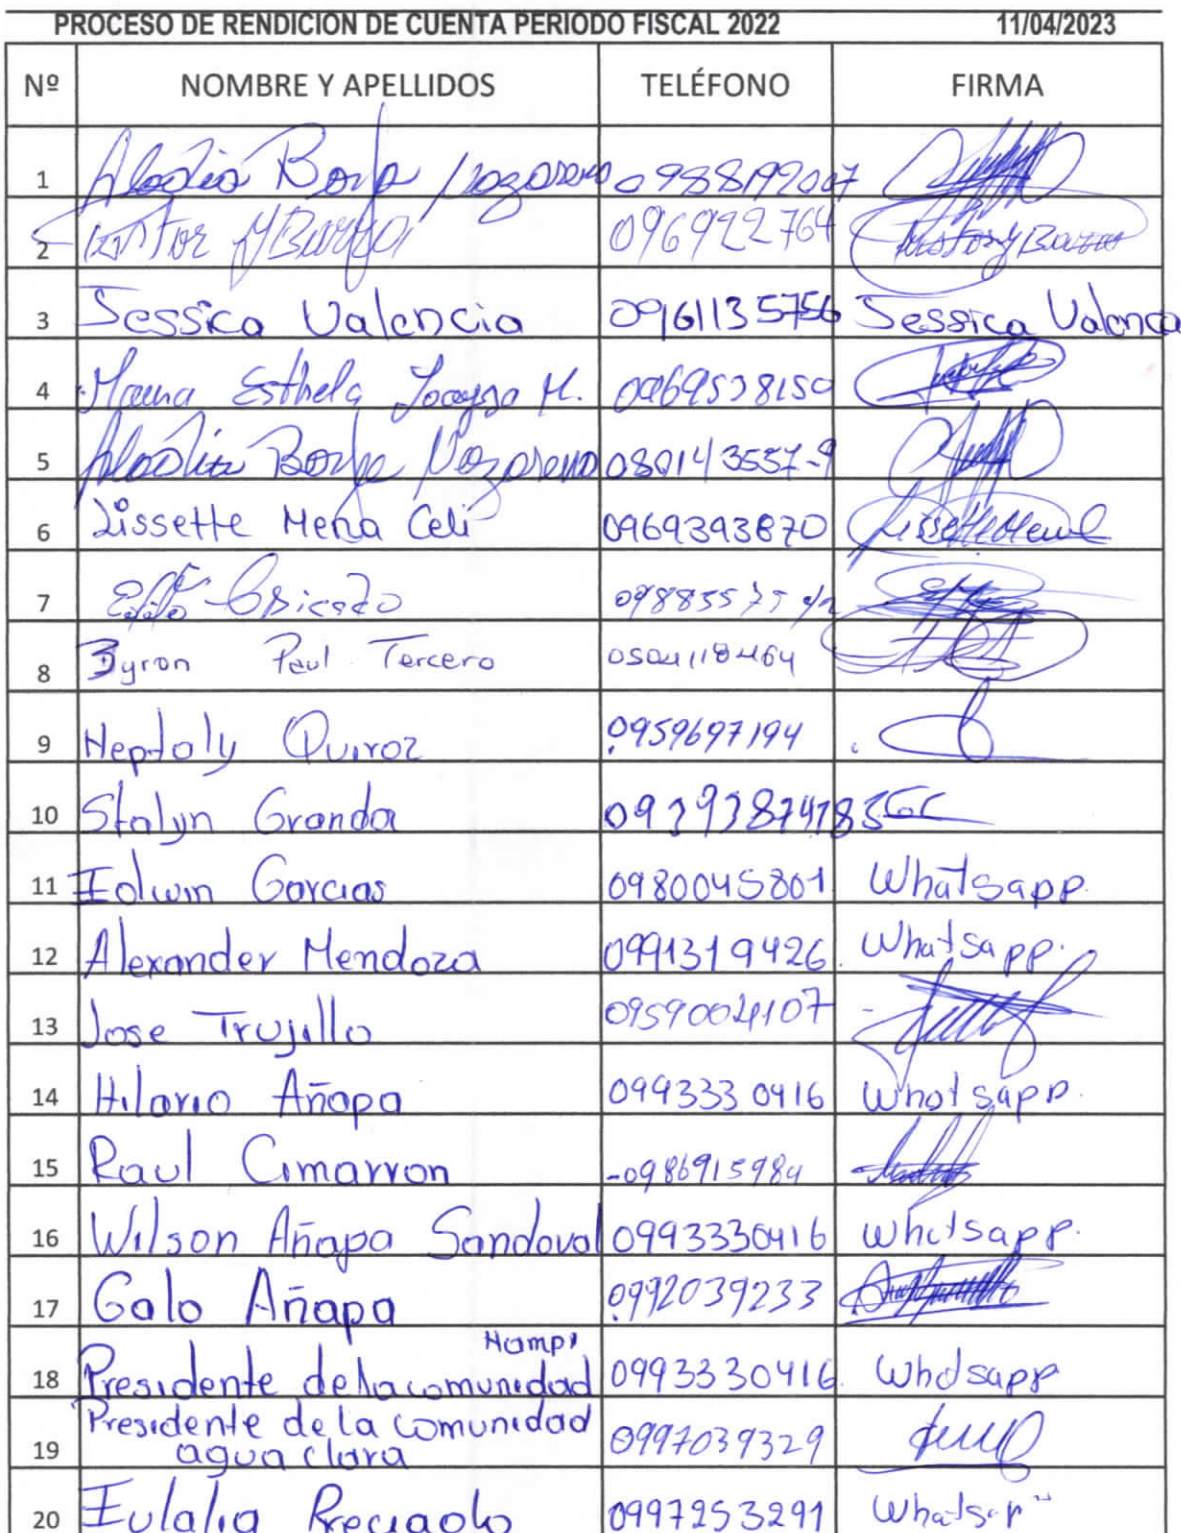 PROCESO DE RENDICION DE CUENTA PERIODO FISCAL 2022 11/04/2023
Nº NOMBRE Y APELLIDOS TELÉFONO FIRMA
1 Alodia Borja Nazareno
2
3 Jessica Valencia 0961135756 Jessica Valencia
4 Esthela M. 0969538150
5 Alodia Borja Nazareno 080143557-9
6 Lissette Mena Celi 0969393870 Lissette Mena
7
8 Byron Paul Tercero
9 Heptaly Quiroz 0959697194
10 Stalyn Granda
11 Edwin Garcias 0980045801 Whatsapp.
12 Alexander Mendoza 0991319426 Whatsapp.
13 Jose Trujillo 0959004107
14 Hilario Añapa 0993330416 Whatsapp.
15 Raul Cimarron -0986915984
16 Wilson Añapa Sandoval 0993330416 Whatsapp.
17 Galo Añapa 0992039233
Hampi
18 Presidente de la comunidad 0993330416 Whatsapp
Presidente de la comunidad
19 agua clara 0997039329
20 Eulalia Preciado 0997253291